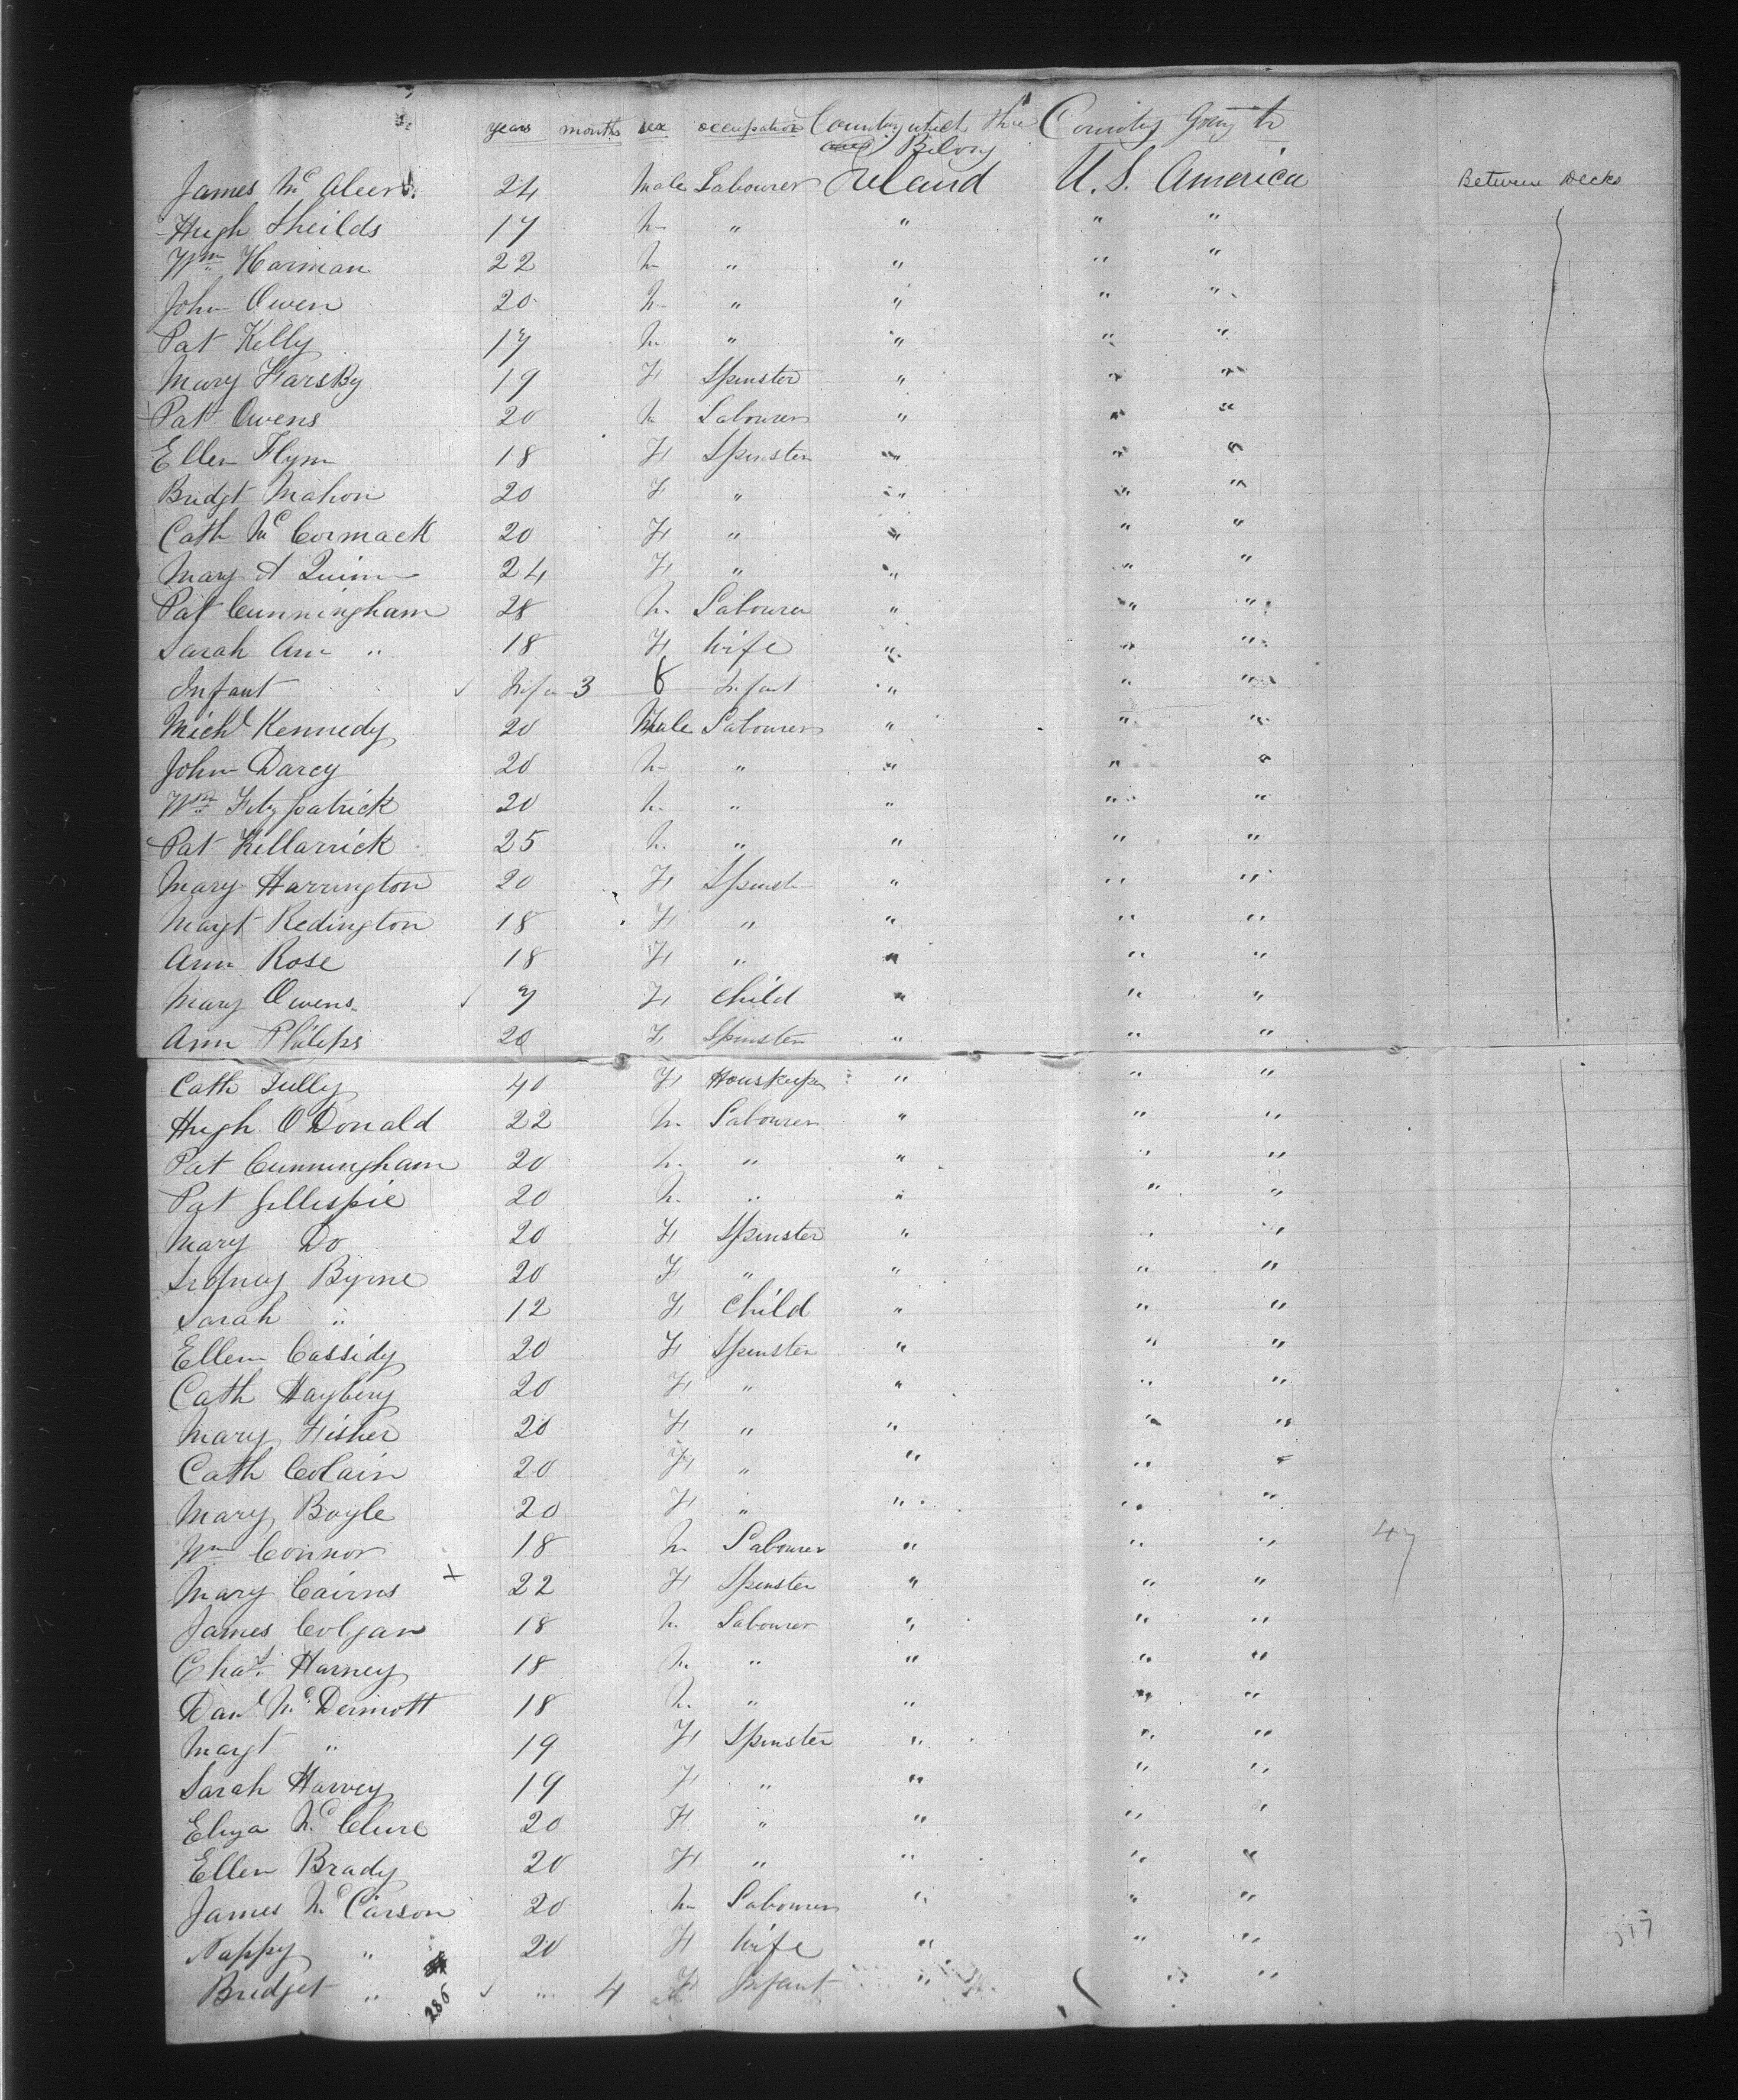 years months sex occupation Country which they Country Going to
Belong
James Mc Aleer 24 Male Labourer Ireland U.S. America Between Decks
Hugh Sheilds 17 M " " " "
Wm Harman 22 M " " " "
John Owen 20 M " " " "
Pat Kelly 17 M " " " "
Mary Harsky 19 F Spinster " " "
Pat Owens 20 M Labourer " " "
Ellen Flynn 18 F Spinster " " "
Bridgt Mahon 20 F " " " "
Cath Mc Cormack 20 F " " " "
Mary A Quinn 24 F " " " "
Pat Cunningham 28 M Labourer " " "
Sarah Ann " 18 F Wife " " "
Infant Infan 3 Infant " " "
Michl Kennedy 20 Male Labourer " " "
John Darcy 20 M " " " "
Wm Fitzpatrick 20 M " " " "
Pat Killarrick 25 M " " " "
Mary Harrington 20 F Spinst " " "
Margt Redington 18 F " " " "
Ann Rose 18 F " " " "
Mary Owens 7 F Child " " "
Ann Philips 20 F Spinster " " "
Cath Tully 40 F Houskeeper " " "
Hugh O Donald 22 M Labourer " " "
Pat Cunningham 20 M " " " "
Pat Gillespie 20 M " " " "
Mary Do 20 F Spinster " " "
Sidney Byrne 20 F " " " "
Sarah " 12 F Child " " "
Ellen Cassidy 20 F Spinster " " "
Cath Hayberry 20 F " " " "
Mary Fisher 20 F " " " "
Cath Colain 20 F " " " "
Mary Boyle 20 F " " " "
Wm Connor 18 M Labourer " " " 47
Mary Cairns x 22 F Spinster " " "
James Colgan 18 M Labourer " " "
Chas. Harney 18 M " " " "
Danl Mc Dermott 18 M " " " "
Margt " 19 F Spinster " " "
Sarah Harvey 19 F " " " "
Eliza Mc Clure 20 F " " " "
Ellen Brady 20 F " " " "
James Mc Carson 20 M Labourer " " "
Nappy " 20 F Wife " " "
Bridget " 286 " 4 F Infant " " "